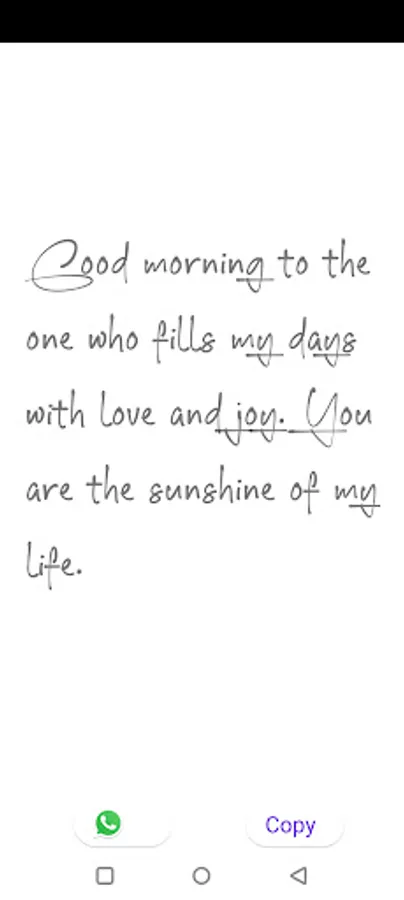 Good morning to the
one who fills my days
with love and joy. You
are the sunshine of my
life.
Copy